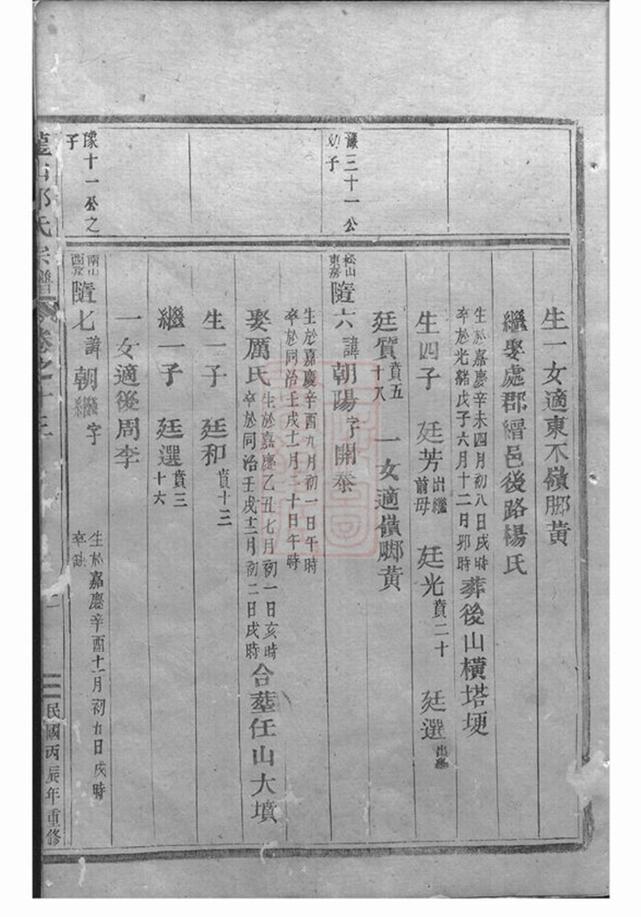 生一女適東不嶺腳黃
繼娶處郡縉邑後路楊氏
生於嘉慶辛未四月初八日戌時
卒於光緒戊子六月十二日卯時
葬後山橫塔埂
生四子 廷芳 出繼前母 廷光 賁二十 廷選 出繼
廷質 賁五十八 一女適嶺腳黃
豫三十一公
幼子
松山
東房
隨六諱朝陽字開泰
生於嘉慶辛酉九月初一日午時
卒於同治壬戌十一月二十日午時
娶厲氏
生於嘉慶乙丑七月初一日亥時
卒於同治壬戌十二月初二日戌時
合塟任山大墳
生一子 廷和 賁十三
繼一子 廷選 賁三十六
一女適後周李
豫十一公之
子
南山
隨七諱朝繼字
生於嘉慶辛酉十一月初九日戌時
卒缺
氏宗譜 卷之十三
民國丙辰年重修